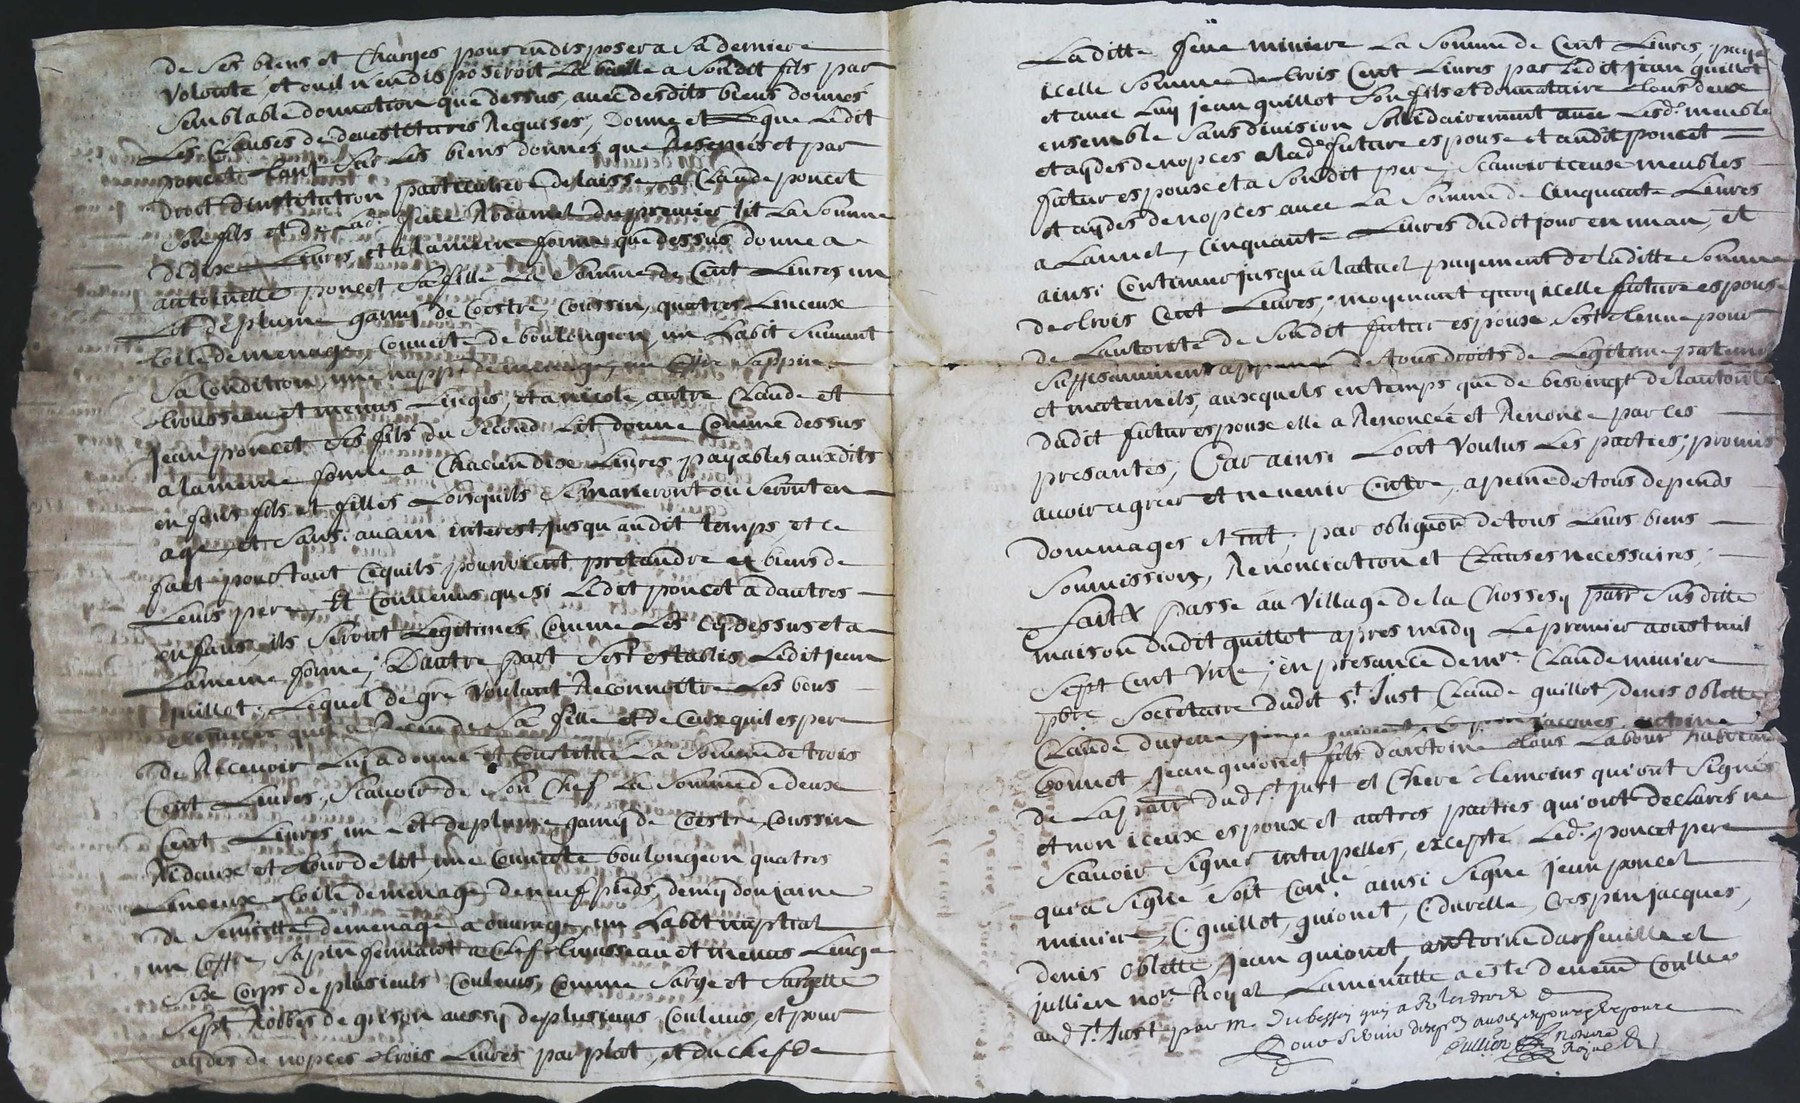 de ses biens et charges pour en disposer a sa derniere
volonté, et ou il n'en disposeroit La baille a sondit fils par
semblable donnation que dessus, avec desdits biens donnés
Les Clauses de devestitures Requises, donne et Legue Ledit
poncet tant sur Les biens donnés que Reservés et par
droit d'institution particuliere delaisse a Claude poncet
son fils et de Lad. du premier lit La somme
de dix Livres, et a la meme forme que dessus donne a
antoinette poncet sa fille La somme de Cent Livres, un
Lit de plume garny de Coestre, Coussin, quatres Linceux
toille de menage Couverte de boulongeon, un habit suivant
sa Condition, une nappe de menage, un Coffre sappin
trousseau et menus Linges, et a nicole, autre Claude et
Jean poncet ses fils du second Lit donne Comme dessus
a la meme forme a Chacun dix Livres payables auxdits
enfans fils et filles Lorsquils se marieront ou seront en
age, et sans aucun interest jusqu'audit temps, et ce
fait pour tout Cequils pourroient pretandre et biens de
Leurs pere, Et Convenus que si Ledit poncet a dautres
enfans, ils seront Legitimes Comme Les Cy dessus et a
La meme forme; Dautre part s'est establis Ledit Jean
quillot, Lequel de gré voulant Reconnoitre Les bons
services que a Rendu sa fille et de Ceux quil espere
de Recevoir Luy a donné et Constitué La somme de trois
Cent Livres, scavoir de son Chef La somme de deux
Cent Livres, un Lit de plume garny de Coestre, Coussin
Rideaux et tour de lit, une Couverte boulongeon quatres
Linceux toille de menage de neuf pieds, demy douzaine
de serviette de menage a ouvrage, un habit nuptial
un Coffre sapin fermant a Clef trousseau et menus Linge
six Corps de plusieurs Couleurs, Comme sarge et sargette
sept Robbes de grison aussy de plusieurs Couleurs, et pour
aydes de nopces trois Livres par plat, et du chef de
Laditte feue miniere La somme de Cent Livres, payé
icelle somme de trois Cent Livres par Ledit Jean quillot
et avec Luy Jean quillot son fils et donnataire tous deux
ensemble sans division solidairement avec Lesd. meuble
et aydes de nopces a lad. future espouse et audit poncet
futur espoux et a sondit pere, scavoir iceux meubles
et aydes de nopces avec La somme de Cinquante Livres
a Lannel, Cinquante Livres dudit jour en un an, et
ainsi Continuer jusqu'a lactuel payement de laditte somme
de trois Cent Livres; moyenant quoy icelle future espouse
de Lautorité de sondit futur espoux s'est tenue pour
suffisamment de tous droits de Legitime paternels
et maternels, auxquels en temps que de besoingt de lautorité
dudit futur espoux elle a Renoncée et Renonce par Ces
presantes, Car ainsi Lont voulus Les parties; promis
avoir agreer et ne venir Contre, a peine de tous depends
dommages et int; par obligaon de tous Leurs biens
soumission, Renonciation et Clauses necessaires;
Fait & passé au village de la Chossesy parr susditte
maison dudit quillot apres midy Le premier aoust mil
sept Cent unze; en presance de mr. Claude miniere
pbre Societaire dudit St. Just Claude quillot, denis oblette
Claude durelle Jacques antoine
bonnet, Jean quionet fils d'antoine tous Labour habitans
de La parr dud. St. Just et Cheré temoins qui ont signés
et non iceux espoux et autres parties qui ont declarés ne
scavoir signer interpelles, excepté Led. poncet pere
qui a signé soit Conlle ainsi signé Jean poncet
miniere, C. quillot, quionet, C. durelle, Crespin jacques,
denis oblette, Jean quionet, antoine darfeuille et
jullien nore Royal La minutte a este deuem Conllee
aud St. Just par mr. dubessy qui a Rs les droits
Pour
Jullien Notaire
Royal